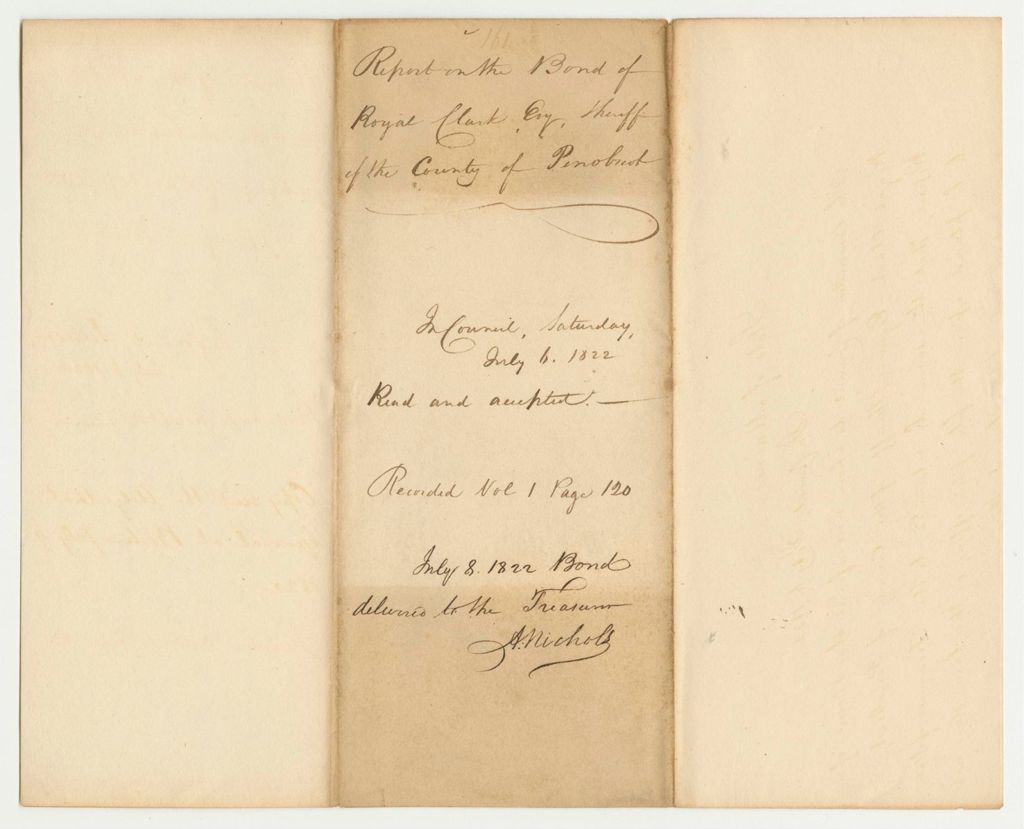 Report on the Bond of
Royal Clark Esq, Sheriff
of the County of Penobscot
In Council, Saturday,
July 6. 1822
Read and accepted. —
Recorded Vol 1 Page 120
July 8. 1822 Bond
delivered to the Treasurer
A. Nichols